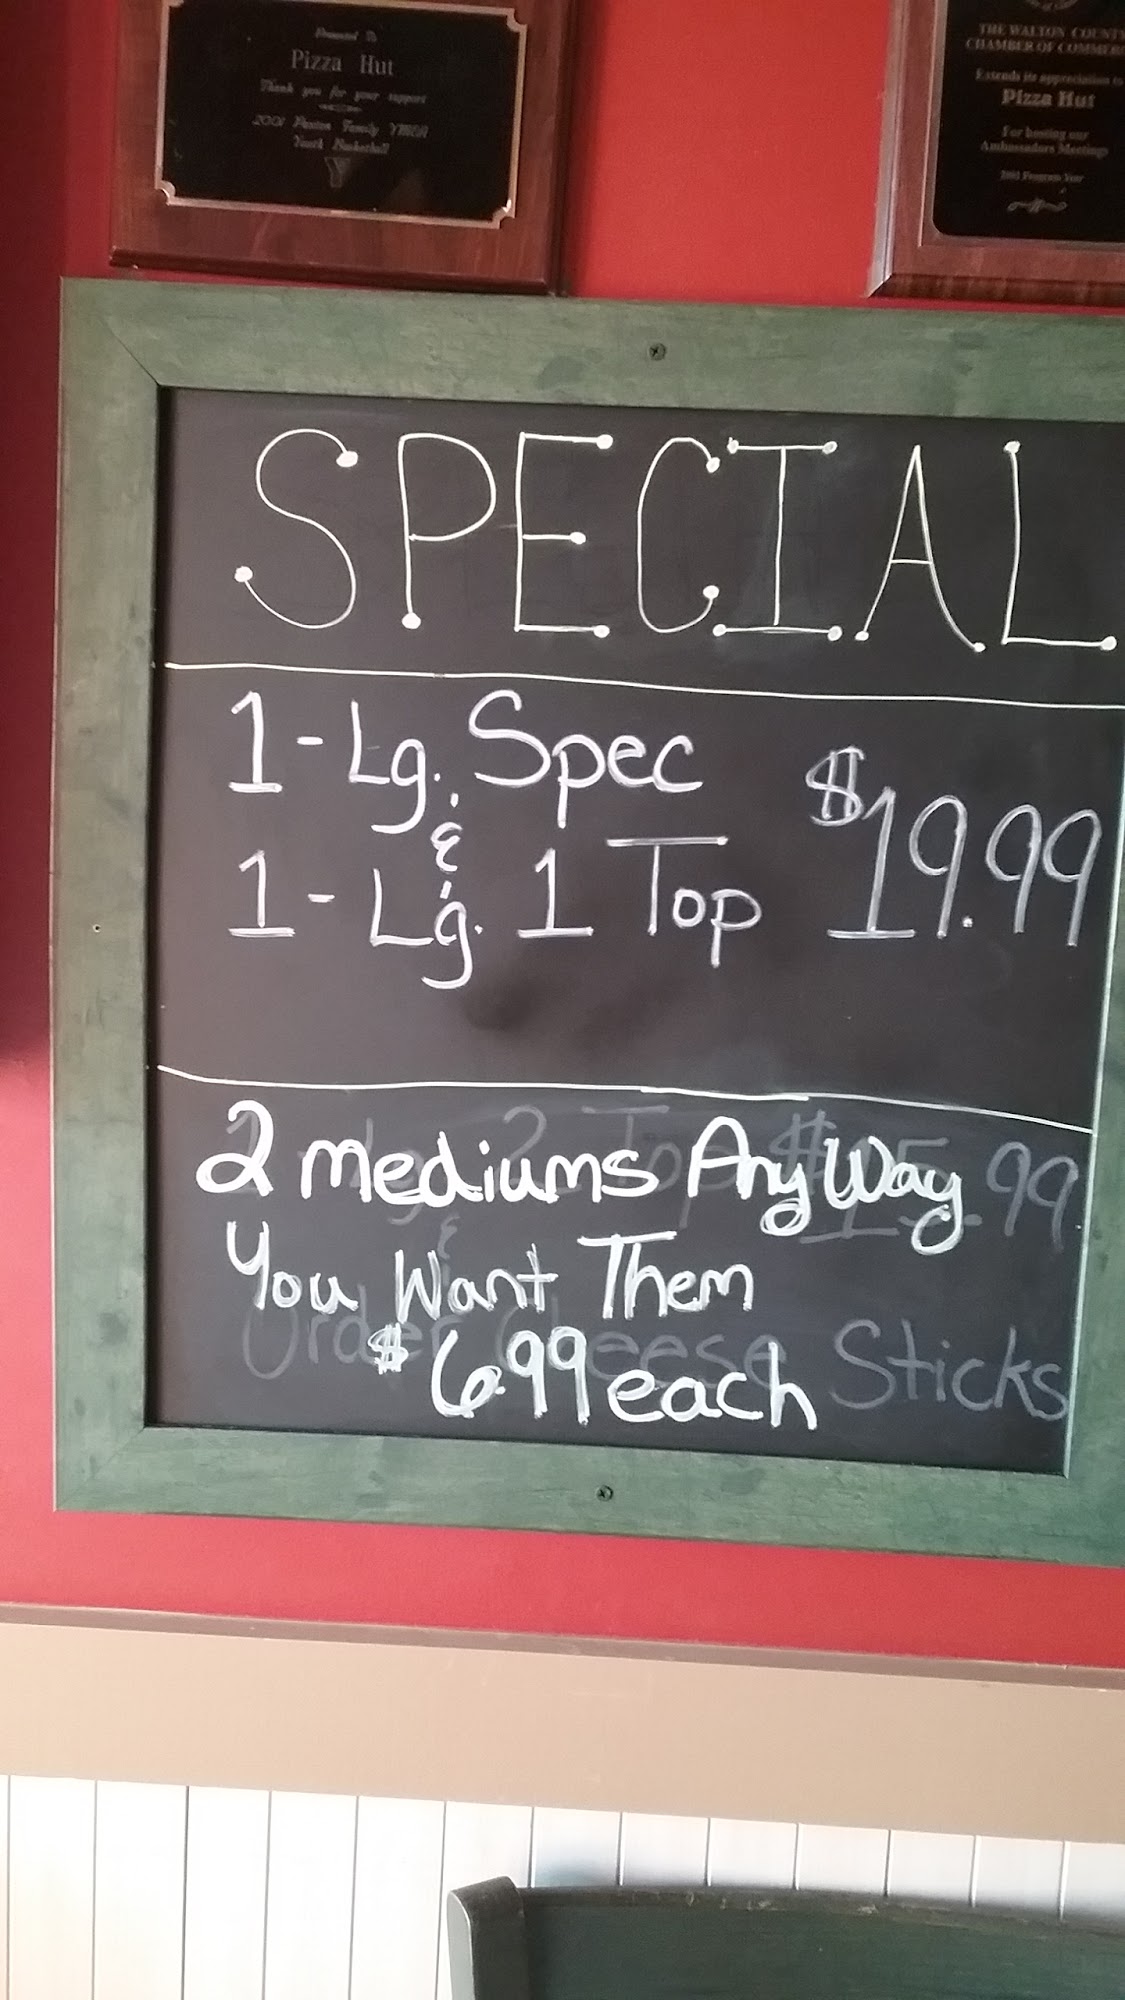 Presented To
Pizza Hut
Thank you for your support
2001 Paxton Family YMCA
Youth Basketball
THE WALTON COUNTY
CHAMBER OF COMMERCE
Extends its appreciation to
Pizza Hut
For hosting our
Ambassadors Meetings
Program Year
SPECIAL
1-Lg. Spec
&
1-Lg. 1 Top $19.99
2 mediums Any Way
You Want Them
$6.99 each
Lg 2 Top $15.99
&
Order Cheese Sticks